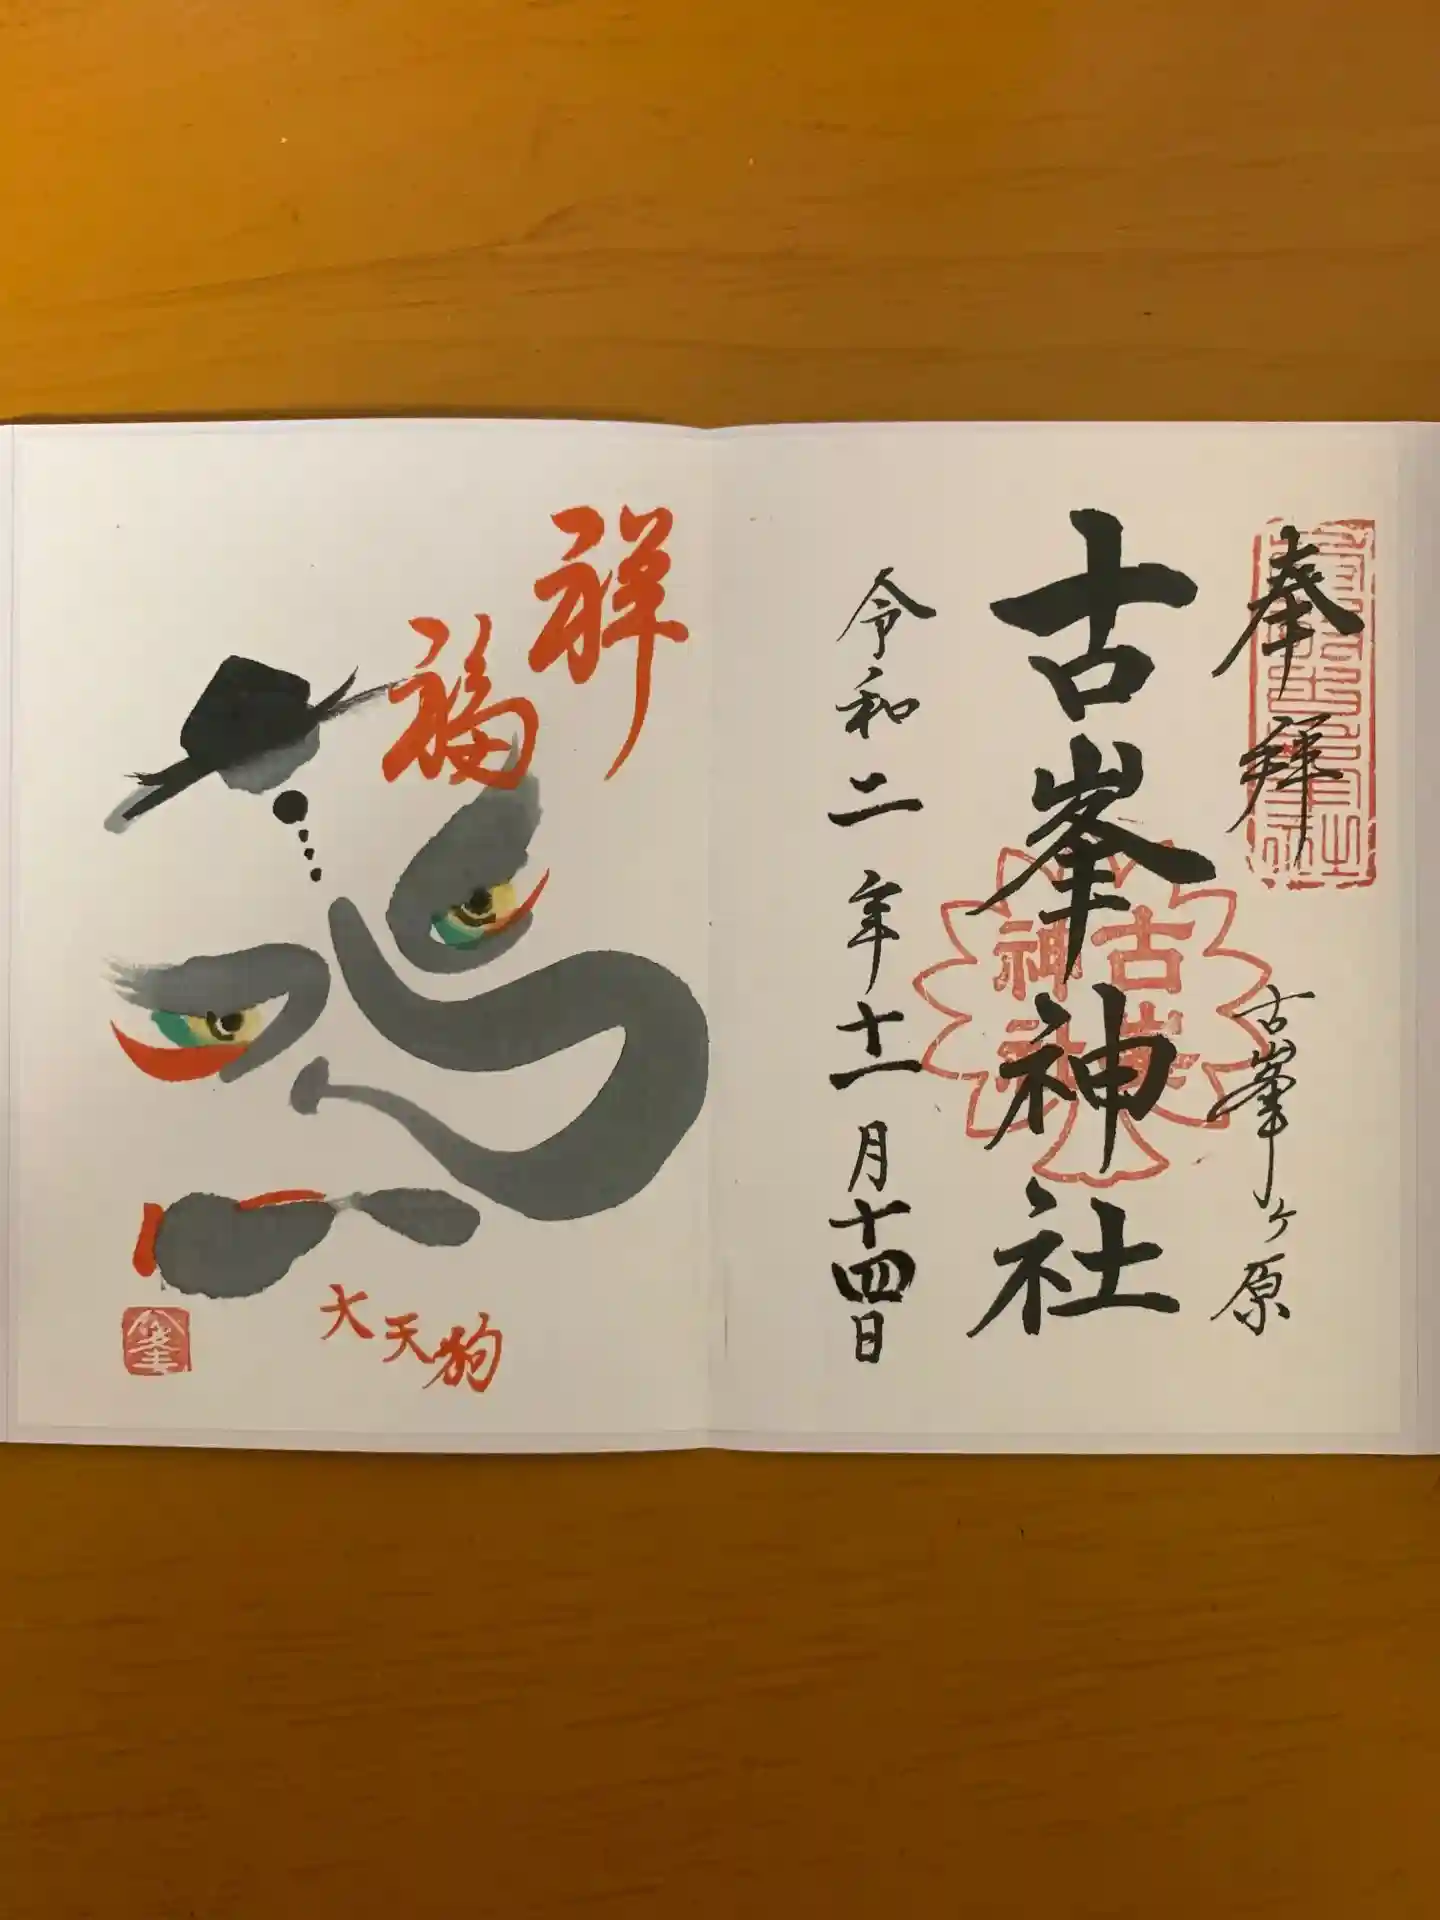 奉拝
古峯ヶ原
古峯神社
古峯
神社
令和二年十一月十四日
祥
福
大天狗
峯